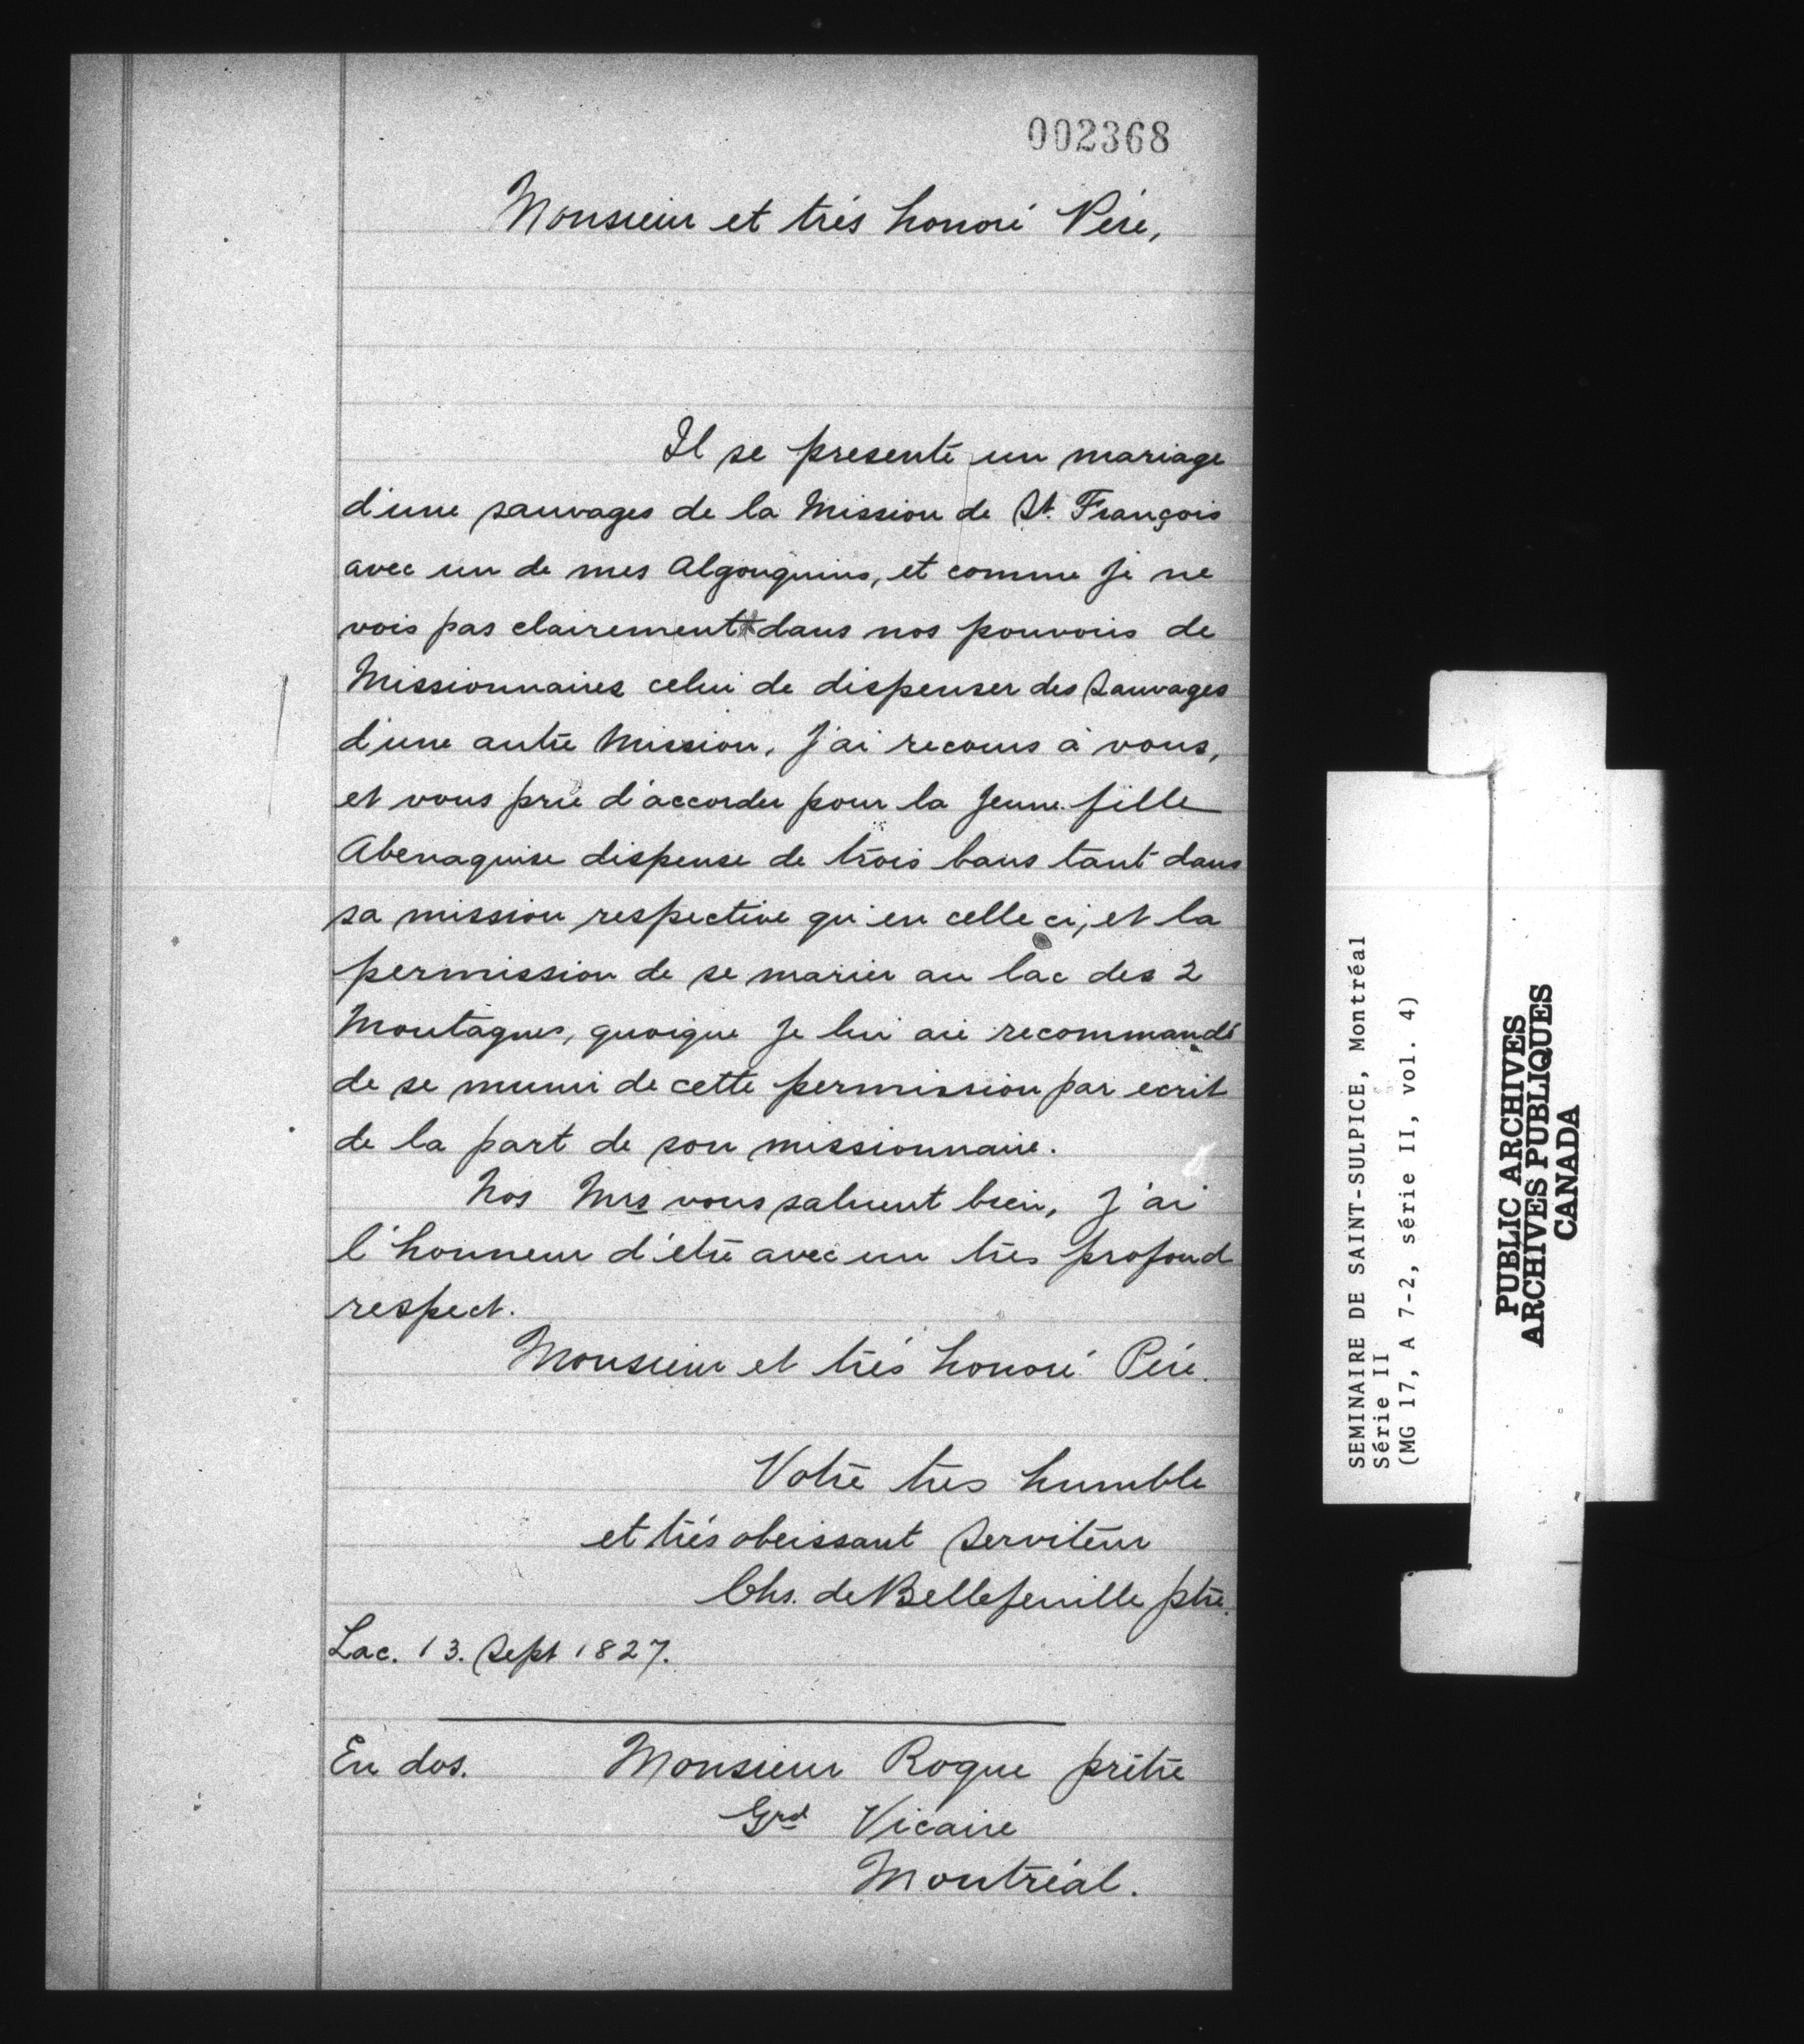 002368
Monsieur et trés honoré Père,
Il se presenté un mariage
d'une sauvages de la Mission de St. François
avec un de mes Algonquins, et comme je ne
vois pas clairement dans nos pouvoirs de
Missionnaires celui de dispenser des Sauvages
d'une autre Mission, J'ai recours à vous,
et vous prie d'accorder pour la Jeune fille
Abenaquise dispense de trois bans tant dans
sa mission respective qu'en celle ci, et la
permission de se marier au lac des 2
Montagnes, quoique Je lui aie recommandé
de se munir de cette permission par ecrit
de la part de son missionnaire.
Nos Mrs vous saluent bien, J'ai
l'honneur d'etre avec un très profond
respect.
Monsieur et trés honoré Père.
Votre tres humble
et trés obeissant Serviteur
Chs. de Bellefeuille ptre.
Lac. 13. Sept 1827.
En dos. Monsieur Roque prêtre
Grd Vicaire
Montréal.
SEMINAIRE DE SAINT-SULPICE, Montréal
Série II
(MG 17, A 7-2, série II, vol. 4)
PUBLIC ARCHIVES
ARCHIVES PUBLIQUES
CANADA